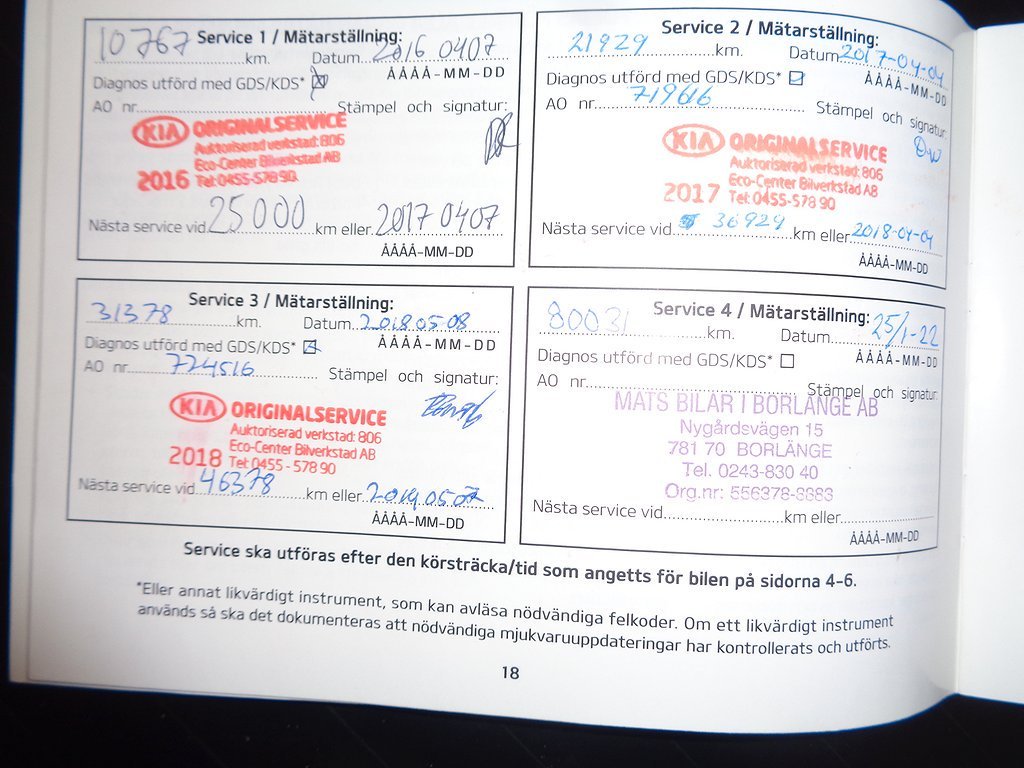 Service 1 / Mätarställning:
10767 km. Datum 2016 0407
ÅÅÅÅ-MM-DD
Diagnos utförd med GDS/KDS*
AO nr. Stämpel och signatur:
KIA ORIGINALSERVICE
Auktoriserad verkstad: 806
Eco-Center Bilverkstad AB
2016 Tel: 0455-578 90
Nästa service vid 25000 km eller 2017 0407
ÅÅÅÅ-MM-DD
Service 2 / Mätarställning:
21929 km. Datum 2017-04-04
ÅÅÅÅ-MM-DD
Diagnos utförd med GDS/KDS*
AO nr. 719616 Stämpel och signatur:
KIA ORIGINALSERVICE
Auktoriserad verkstad: 806
Eco-Center Bilverkstad AB
2017 Tel: 0455-578 90
Nästa service vid 36929 km eller 2018-04-04
ÅÅÅÅ-MM-DD
Service 3 / Mätarställning:
31378 km. Datum 2018 05 08
ÅÅÅÅ-MM-DD
Diagnos utförd med GDS/KDS*
AO nr. 724516 Stämpel och signatur:
KIA ORIGINALSERVICE
Auktoriserad verkstad: 806
Eco-Center Bilverkstad AB
2018 Tel: 0455 - 578 90
Nästa service vid 46378 km eller 2019 05 07
ÅÅÅÅ-MM-DD
Service 4 / Mätarställning:
80031 km. Datum 25/1-22
ÅÅÅÅ-MM-DD
Diagnos utförd med GDS/KDS*
AO nr. Stämpel och signatur:
MATS BILAR I BORLÄNGE AB
Nygårdsvägen 15
781 70 BORLÄNGE
Tel. 0243-830 40
Org.nr: 556378-8683
Nästa service vid km eller
ÅÅÅÅ-MM-DD
Service ska utföras efter den körsträcka/tid som angetts för bilen på sidorna 4-6.
*Eller annat likvärdigt instrument, som kan avläsa nödvändiga felkoder. Om ett likvärdigt instrument
används så ska det dokumenteras att nödvändiga mjukvaruuppdateringar har kontrollerats och utförts.
18